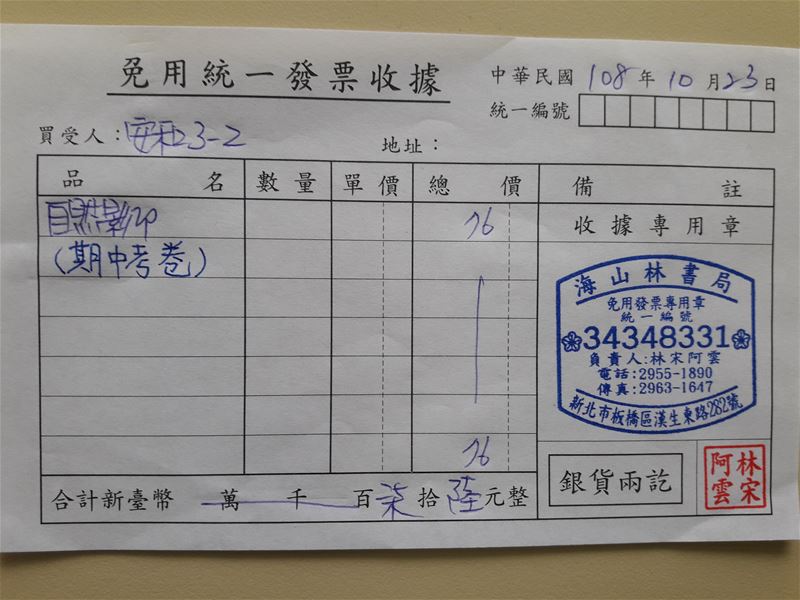 免用統一發票收據
中華民國 108 年 10 月 23 日
統一編號
買受人：安和23-2
地址：
品名 數量 單價 總價 備註
自然影印 76 收據專用章
(期中考卷)
海山林書局
免用發票專用章
統一編號
34348331
負責人:林宋阿雲
電話:2955-1890
傳真:2963-1647
新北市板橋區漢生東路282號
76
合計新臺幣 萬 千 百 柒 拾 陸 元整
銀貨兩訖
林宋
阿雲